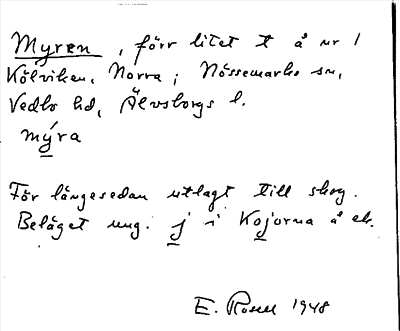 Myren, förr litet t å nr 1
Kölviken, Norra; Nössemarks sn,
Vedbo hd, Älvsborgs l.
mýra
För längesedan utlagt till skog.
Beläget ung. j i Kojorna å ek.
E. Rosell 1948